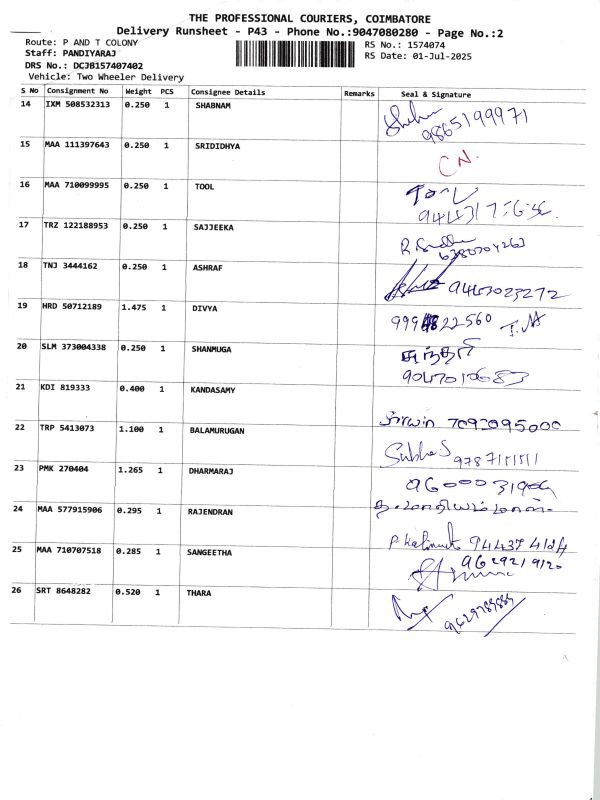 THE PROFESSIONAL COURIERS, COIMBATORE
Delivery Runsheet - P43 - Phone No.:9047080280 - Page No.:2
Route: P AND T COLONY
RS No.: 1574074
Staff: PANDIYARAJ
RS Date: 01-Jul-2025
DRS No.: DCJB157407402
Vehicle: Two Wheeler Delivery
S No Consignment No Weight PCS Consignee Details Remarks Seal & Signature
14 IXM 508532313 0.250 1 SHABNAM
9865199971
15 MAA 111397643 0.250 1 SRIDIDHYA
CN.
16 MAA 710099995 0.250 1 TOOL
17 TRZ 122188953 0.250 1 SAJJEEKA
18 TNJ 3444162 0.250 1 ASHRAF
9443023272
19 HRD 50712189 1.475 1 DIVYA
20 SLM 373004338 0.250 1 SHANMUGA
சுந்தரி
9047010683
21 KDI 819333 0.400 1 KANDASAMY
7093095000
22 TRP 5413073 1.100 1 BALAMURUGAN
Subha S
23 PMK 270404 1.265 1 DHARMARAJ
24 MAA 577915906 0.295 1 RAJENDRAN
25 MAA 710707518 0.285 1 SANGEETHA
9629219120
26 SRT 8648282 0.520 1 THARA